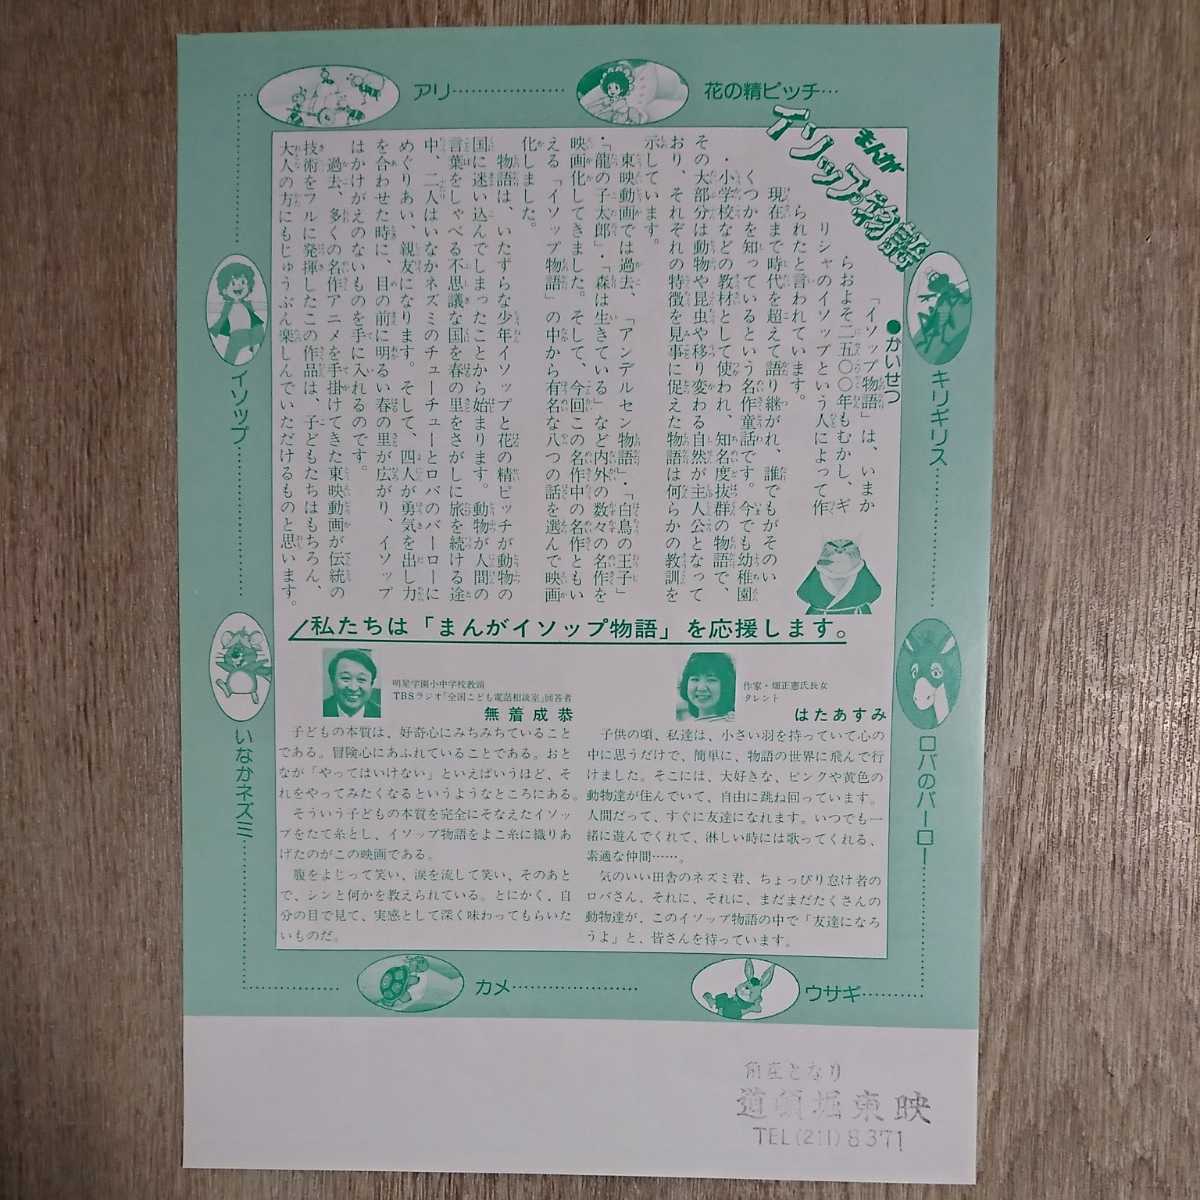 アリ
花の精ピッチ
まんが
イソップ物語
キリギリス
ロバのバーロー
ウサギ
カメ
いなかネズミ
イソップ
●かいせつ
「イソップ物語」は、いまか
らおよそ二五〇〇年もむかし、ギ
リシャのイソップという人によって作
られたと言われています。
現在まで時代を超えて語り継がれ、誰でもがそのい
くつかを知っているという名作童話です。今でも幼稚園
・小学校などの教材として使われ、知名度抜群の物語で、
その大部分は動物や昆虫や移り変わる自然が主人公となって
おり、それぞれの特徴を見事に促えた物語は何らかの教訓を
示しています。
東映動画では過去、「アンデルセン物語」・「白鳥の王子」
・「龍の子太郎」・「森は生きている」など内外の数々の名作を
映画化してきました。そして、今回この名作中の名作ともい
える「イソップ物語」の中から有名な八つの話を選んで映画
化しました。
物語は、いたずらな少年イソップと花の精ピッチが動物の
国に迷い込んでしまったことから始まります。動物が人間の
言葉をしゃべる不思議な国を春の里をさがしに旅を続ける途
中、二人はいなかネズミのチューチューとロバのバーローに
めぐりあい、親友になります。そして、四人が勇気を出し力
を合わせた時に、目の前に明るい春の里が広がり、イソップ
はかけがえのないものを手に入れるのです。
過去、多くの名作アニメを手掛けてきた東映動画が伝統の
技術をフルに発揮したこの作品は、子どもたちはもちろん、
大人の方にもじゅうぶん楽しんでいただけるものと思います。
私たちは「まんがイソップ物語」を応援します。
明星学園小中学校教頭
TBSラジオ「全国こども電話相談室」回答者
無着成恭
子どもの本質は、好奇心にみちみちていること
である。冒険心にあふれていることである。おと
なが「やってはいけない」といえばいうほど、そ
れをやってみたくなるというようなところにある。
そういう子どもの本質を完全にそなえたイソッ
プをたて糸とし、イソップ物語をよこ糸に織りあ
げたのがこの映画である。
腹をよじって笑い、涙を流して笑い、そのあと
で、シンと何かを教えられている。とにかく、自
分の目で見て、実感として深く味わってもらいた
いものだ。
作家・畑正憲氏長女
タレント
はたあすみ
子供の頃、私達は、小さい羽を持っていて心の
中に思うだけで、簡単に、物語の世界に飛んで行
けました。そこには、大好きな、ピンクや黄色の
動物達が住んでいて、自由に跳ね回っています。
人間だって、すぐに友達になれます。いつでも一
緒に遊んでくれて、淋しい時には歌ってくれる、
素適な仲間……。
気のいい田舎のネズミ君、ちょっぴり怠け者の
ロバさん、それに、それに、まだまだたくさんの
動物達が、このイソップ物語の中で「友達になろ
うよ」と、皆さんを待っています。
角座となり
道頓堀東映
TEL(211)8371